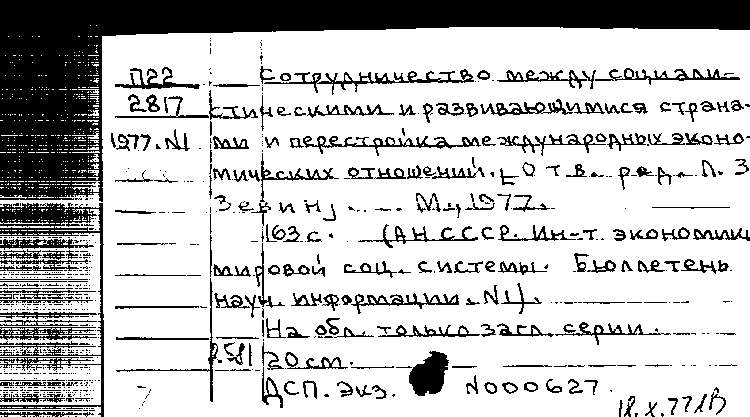 П22 Сотрудничество между социали-
2817 стическими и развивающимися страна-
1977.N1 ми и перестройка международных эконо-
мических отношений. [Отв. ред. Л. З
Зевин]. — М., 1977.
163с. (АН СССР. Ин-т экономики
мировой соц. системы. Бюллетень
науч. информации. N1).
На обл. только загл. серии.
20см.
ДСП. Экз. N000627.
18.X.77